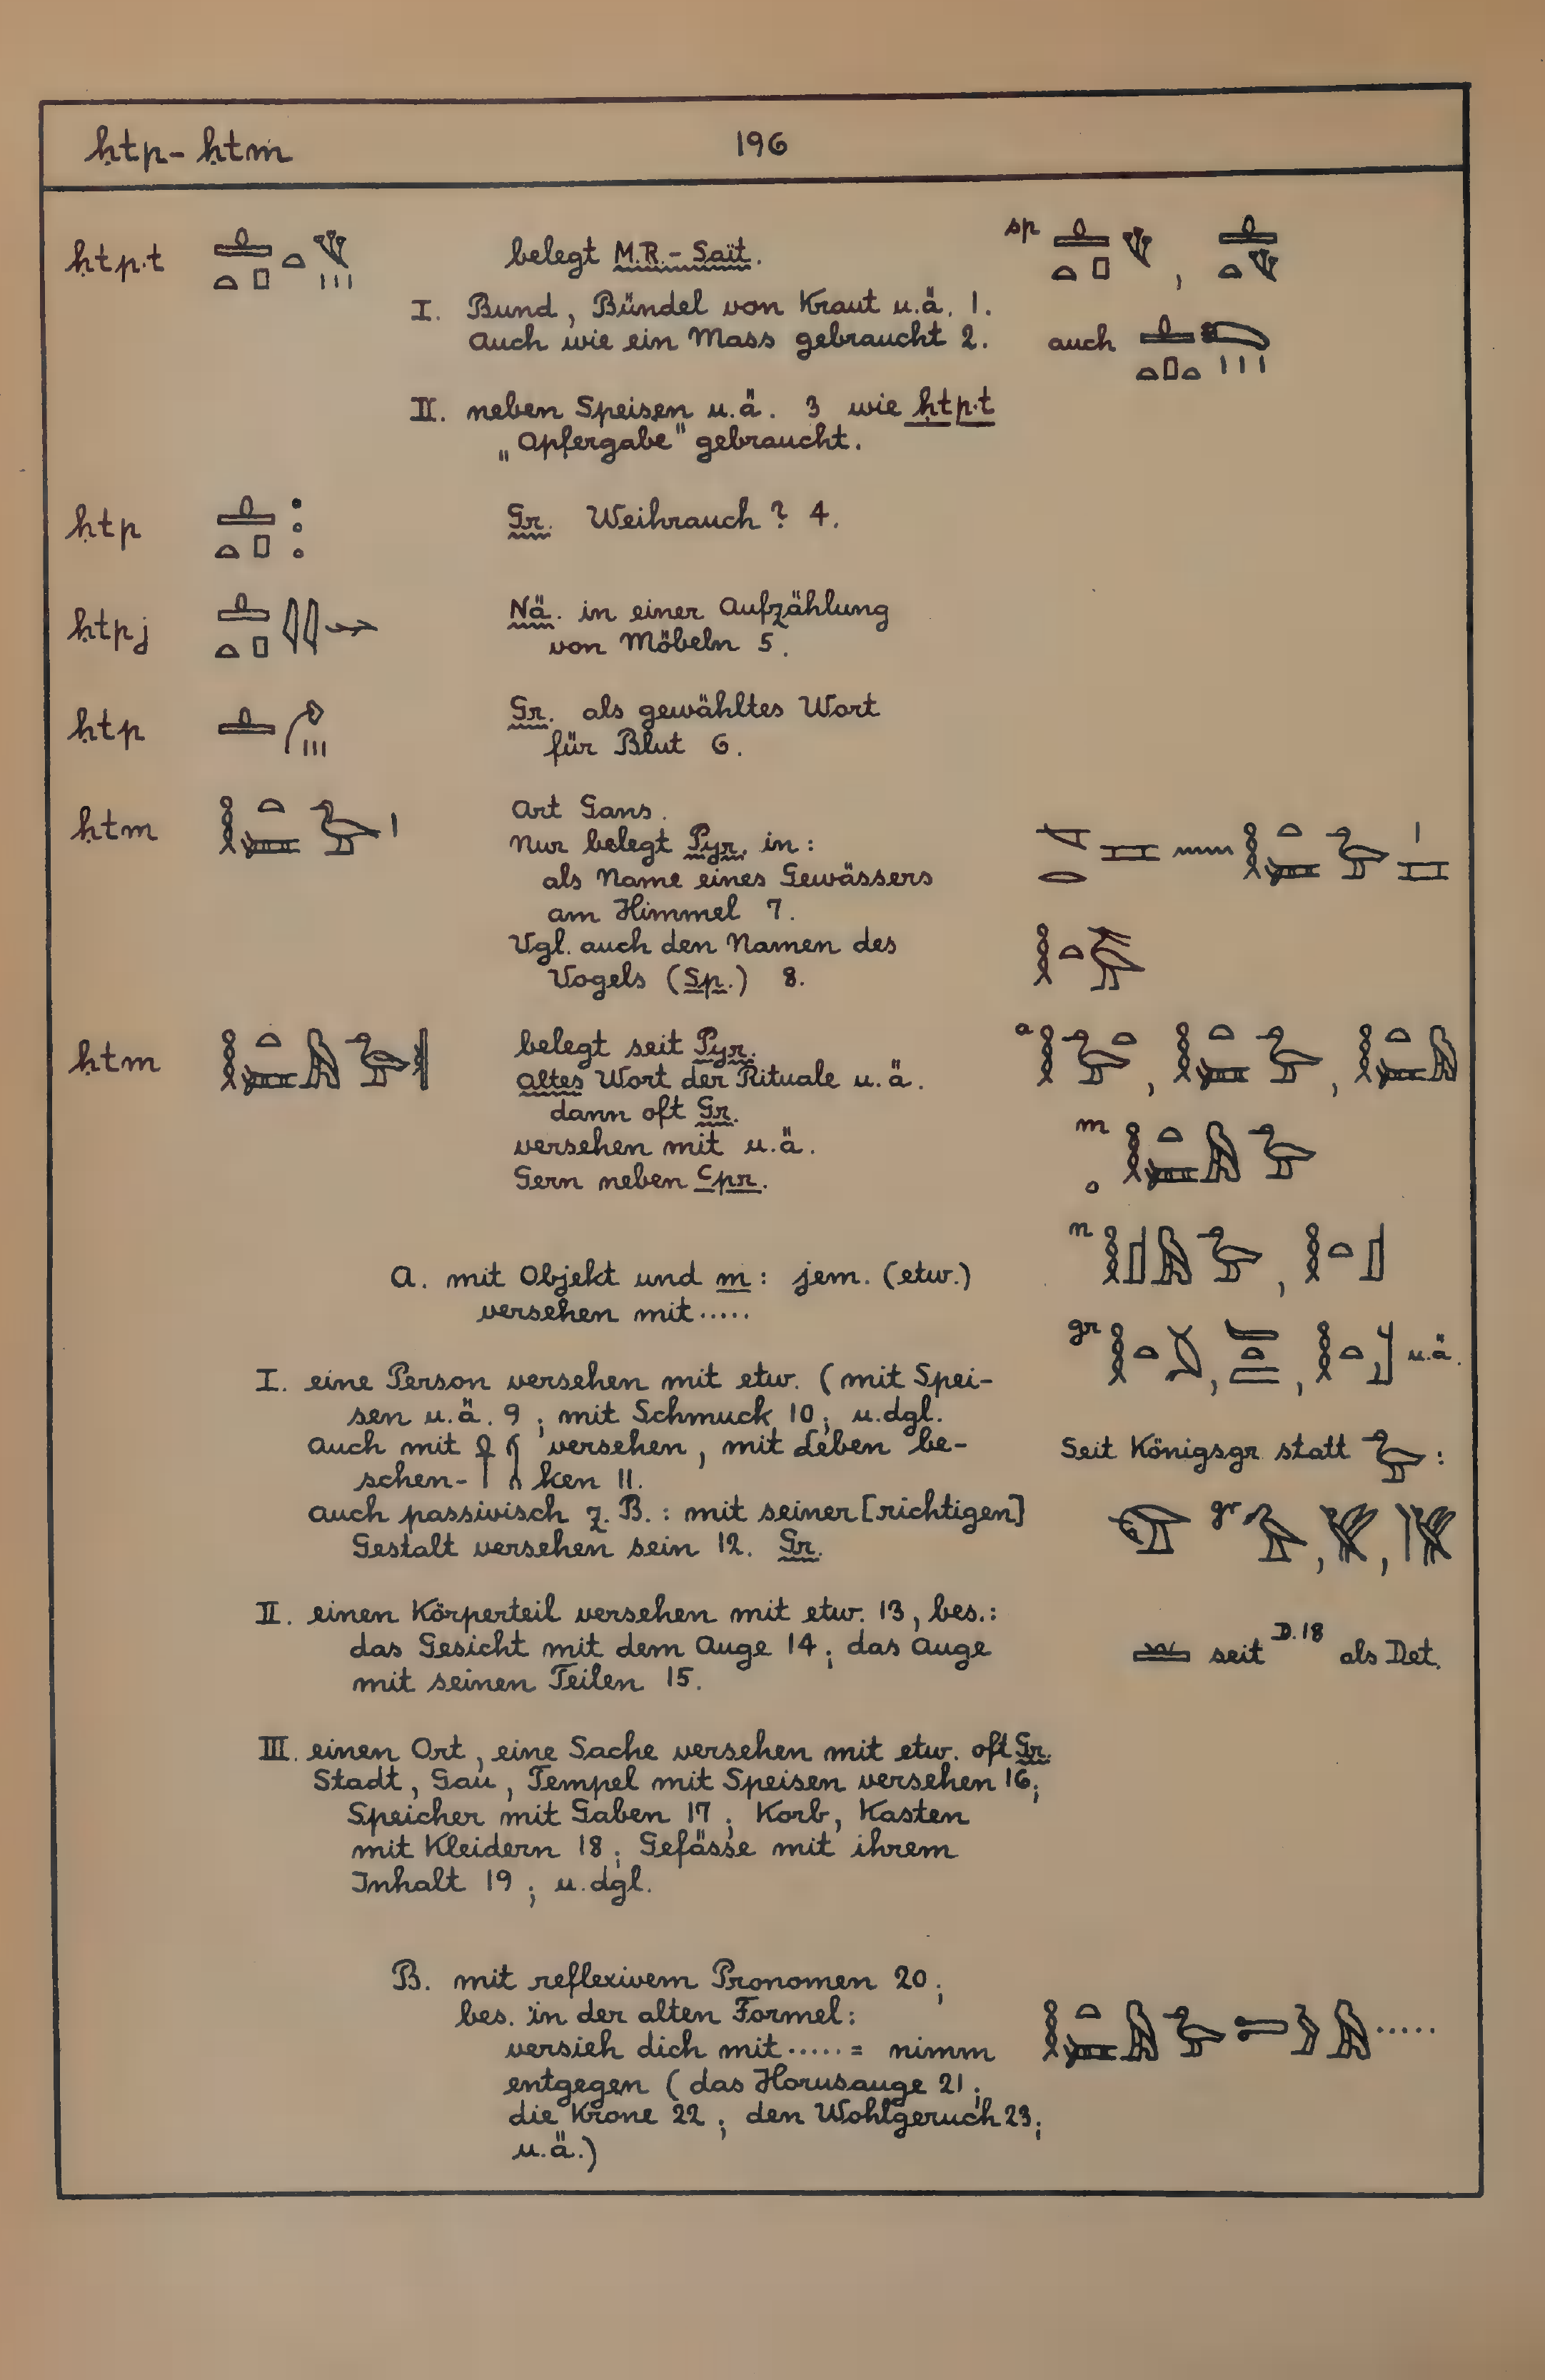 ḥtp - ḥtm 196
ḥtp·t belegt M.R. - Saït. sp
I. Bund, Bündel von Kraut u.ä. 1.
Auch wie ein Mass gebraucht 2. auch
II. neben Speisen u.ä. 3 wie ḥtp·t
„Opfergabe" gebraucht.
ḥtp Gr. Weihrauch ? 4.
ḥtpj Nä. in einer Aufzählung
von Möbeln 5.
ḥtp Gr. als gewähltes Wort
für Blut 6.
ḥtm Art Gans.
Nur belegt Pyr. in:
als Name eines Gewässers
am Himmel 7.
Vgl. auch den Namen des
Vogels (Sp.) 8.
ḥtm belegt seit Pyr. a
altes Wort der Rituale u.ä.
dann oft Gr.
versehen mit u.ä. m
Gern neben ꜥpr.
n
A. mit Objekt und m: jem. (etw.)
versehen mit.....
gr u.ä.
I. eine Person versehen mit etw. (mit Spei-
sen u.ä. 9; mit Schmuck 10; u.dgl.
Auch mit 𓋹 𓌀 versehen, mit Leben be- Seit Königsgr statt 𓅭 :
schen- ken 11.
Auch passivisch z.B.: mit seiner [richtigen] gr
Gestalt versehen sein 12. Gr.
II. einen Körperteil versehen mit etw. 13, bes.:
das Gesicht mit dem Auge 14; das Auge seit D.18 als Det.
mit seinen Teilen 15.
III. einen Ort, eine Sache versehen mit etw. oft Gr.
Stadt, Gau, Tempel mit Speisen versehen 16;
Speicher mit Gaben 17; Korb, Kasten
mit Kleidern 18; Gefässe mit ihrem
Inhalt 19; u.dgl.
B. mit reflexivem Pronomen 20;
bes. in der alten Formel:
versieh dich mit ..... = nimm .....
entgegen (das Horusauge 21;
die Krone 22; den Wohlgeruch 23;
u.ä.)